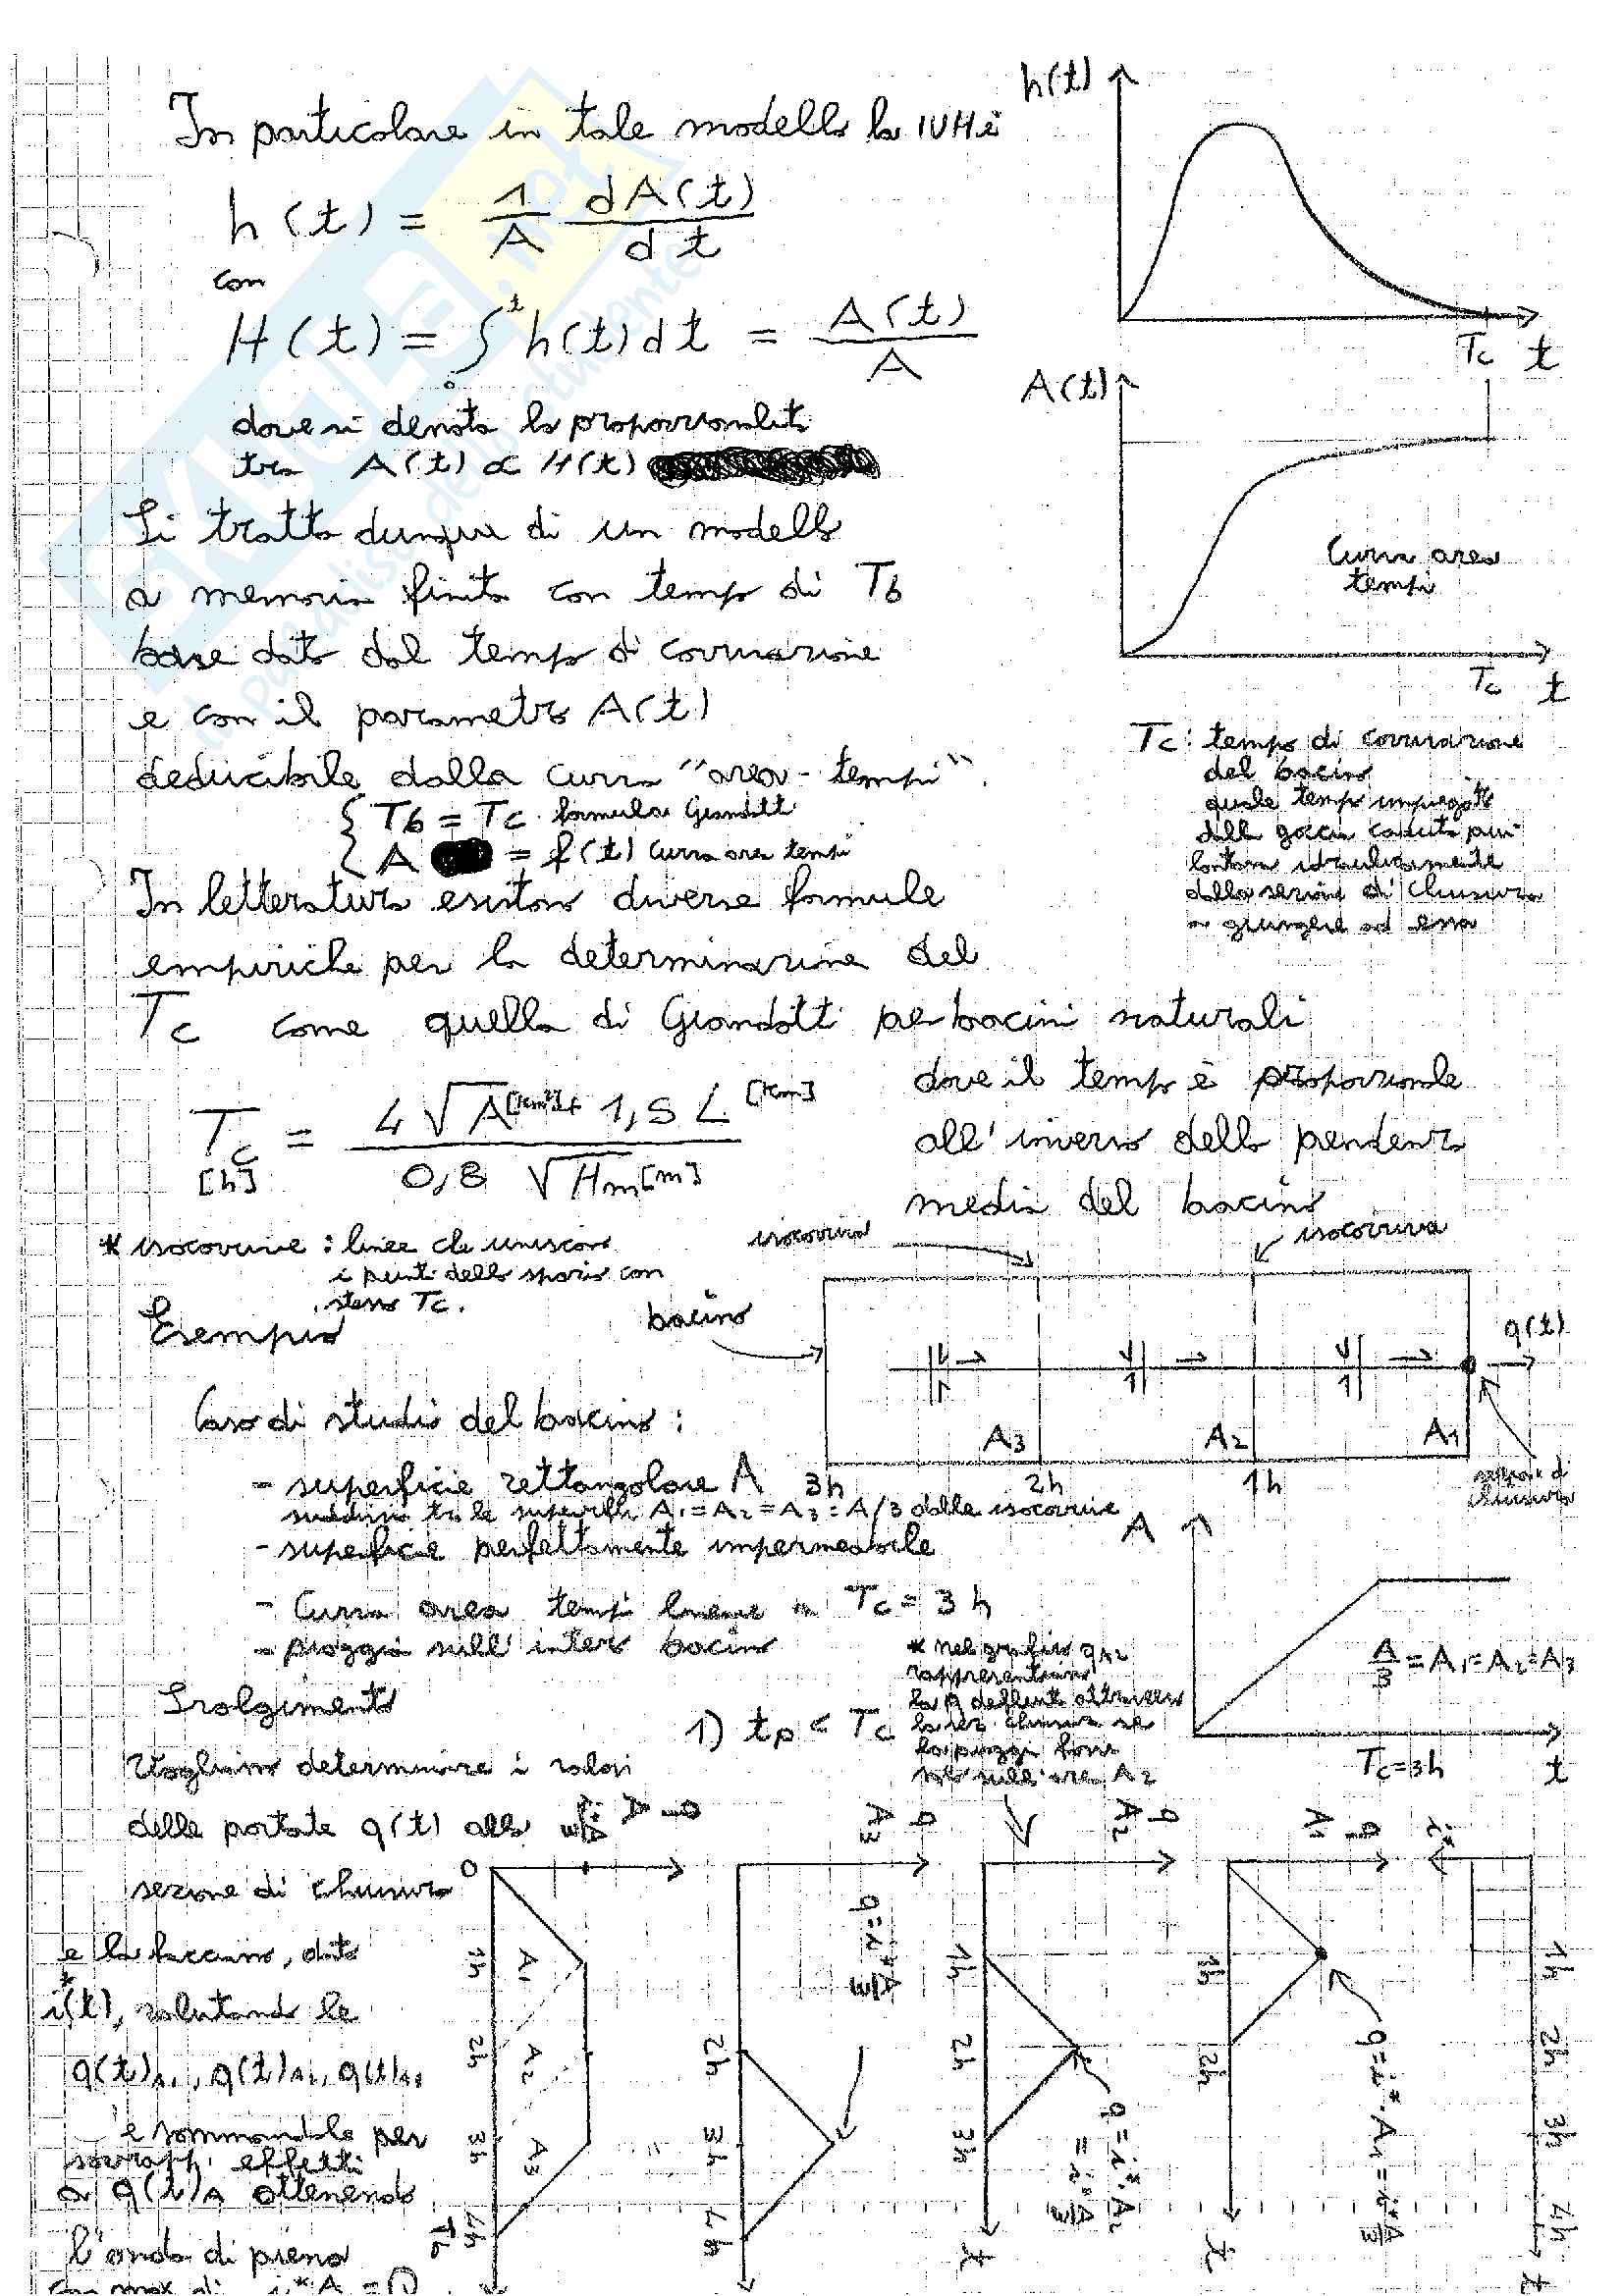 In particolare in tale modello la IUH è
h(t) = 1/A dA(t)/dt
con
H(t) = ∫₀ᵗ h(t)dt = A(t)/A
dove si denota la proporzionalità
tra A(t) ∝ H(t)
Si tratta dunque di un modello
a memoria finita con tempo di Tb
base dato dal tempo di corrivazione
e con il parametro A(t)
deducibile dalla curva "area-tempi".
{ Tb = Tc formula Giandotti
{ A = f(t) curva area tempi
h(t)
Tc t
A(t)
Curva area
tempi
Tc t
Tc: tempo di corrivazione
del bacino
quale tempo impiegato
dalla goccia caduta più
lontana idraulicamente
dalla sezione di chiusura
a giungere ad essa
In letteratura esistono diverse formule
empiriche per la determinazione del
Tc come quella di Giandotti per bacini naturali
Tc [h] = (4 √A [km²] + 1,5 L [km]) / (0,8 √Hm [m])
dove il tempo è proporzionale
all'inverso della pendenza
media del bacino
* isocorrive: linee che uniscono
i punti dello spazio con
stesso Tc.
isocorriva
isocorriva
bacino
q(t)
A3 A2 A1
3h 2h 1h
sezione di
chiusura
Esempio
Caso di studio del bacino:
- superficie rettangolare A
suddivisa tra le superfici A1=A2=A3=A/3 dalle isocorrive
- superficie perfettamente impermeabile
- Curva area tempi lineare Tc = 3h
- pioggia sull'intero bacino
A
A/3 = A1=A2=A3
Tc=3h t
Svolgimento
1) tp < Tc
* nel grafico qA2
rappresentiamo
la q defluente attraverso
la sez. chiusura se
la pioggia fosse
solo sull'area A2
Vogliamo determinare i valori
delle portate q(t) alla
sezione di chiusura
e lo facciamo, data
i*(t), valutando le
q(t)A1, q(t)A2, q(t)A3
e sommandole per
sovrapp. effetti
a q(t)A ottenendo
l'onda di piena
con max di i* A = Q
qA
i* A/3
0
1h 2h 3h 4h
A1 A2 A3
Tb
qA3
q=i* A/3
2h 3h 4h
qA2
1h 2h 3h
q=i*·A2
= i* A/3
t
qA1
1h 2h
q=i*·A1=i* A/3
t
i*
1h 2h 3h 4h
t